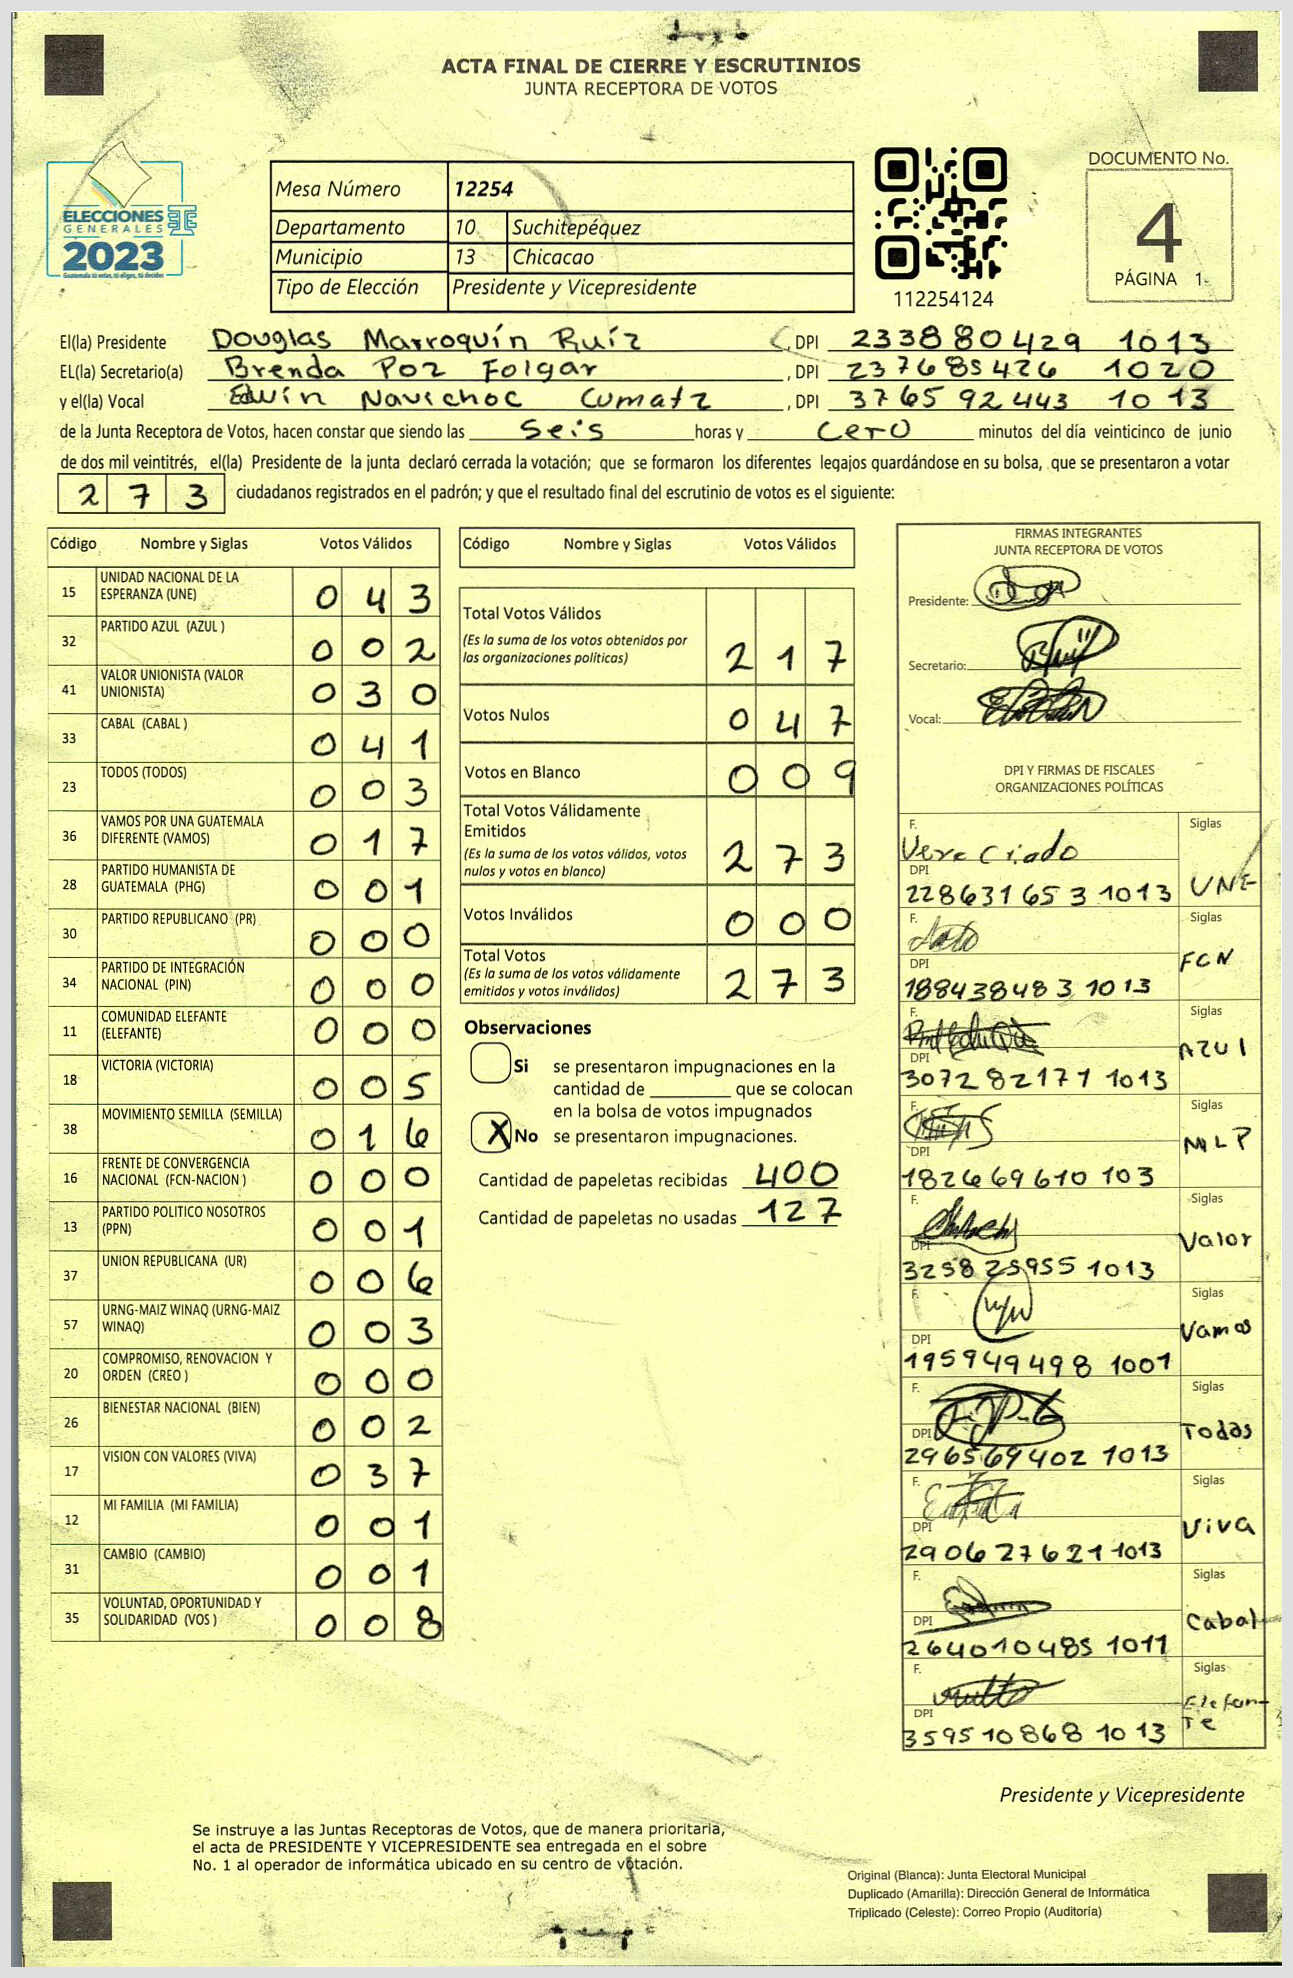 ACTA FINAL DE CIERRE Y ESCRUTINIOS
JUNTA RECEPTORA DE VOTOS
ELECCIONES
GENERALES
2023
Guatemala tú votas, tú eliges, tú decides
Mesa Número 12254
Departamento 10 Suchitepéquez
Municipio 13 Chicacao
Tipo de Elección Presidente y Vicepresidente
112254124
DOCUMENTO No.
4
PÁGINA 1
El(la) Presidente Douglas Marroquín Ruíz, DPI 233880429 1013
EL(la) Secretario(a) Brenda Poz Folgar, DPI 237685426 1020
y el(la) Vocal Edwin Navichoc Cumatz, DPI 376592443 1013
de la Junta Receptora de Votos, hacen constar que siendo las Seis horas y cero minutos del día veinticinco de junio
de dos mil veintitrés, el(la) Presidente de la junta declaró cerrada la votación; que se formaron los diferentes legajos guardándose en su bolsa, que se presentaron a votar
273 ciudadanos registrados en el padrón; y que el resultado final del escrutinio de votos es el siguiente:
Código Nombre y Siglas Votos Válidos
15 UNIDAD NACIONAL DE LA ESPERANZA (UNE) 043
32 PARTIDO AZUL (AZUL ) 002
41 VALOR UNIONISTA (VALOR UNIONISTA) 030
33 CABAL (CABAL ) 041
23 TODOS (TODOS) 003
36 VAMOS POR UNA GUATEMALA DIFERENTE (VAMOS) 017
28 PARTIDO HUMANISTA DE GUATEMALA (PHG) 001
30 PARTIDO REPUBLICANO (PR) 000
34 PARTIDO DE INTEGRACIÓN NACIONAL (PIN) 000
11 COMUNIDAD ELEFANTE (ELEFANTE) 000
18 VICTORIA (VICTORIA) 005
38 MOVIMIENTO SEMILLA (SEMILLA) 016
16 FRENTE DE CONVERGENCIA NACIONAL (FCN-NACION ) 000
13 PARTIDO POLITICO NOSOTROS (PPN) 001
37 UNION REPUBLICANA (UR) 006
57 URNG-MAIZ WINAQ (URNG-MAIZ WINAQ) 003
20 COMPROMISO, RENOVACION Y ORDEN (CREO ) 000
26 BIENESTAR NACIONAL (BIEN) 002
17 VISION CON VALORES (VIVA) 037
12 MI FAMILIA (MI FAMILIA) 001
31 CAMBIO (CAMBIO) 001
35 VOLUNTAD, OPORTUNIDAD Y SOLIDARIDAD (VOS ) 008
Código Nombre y Siglas Votos Válidos
Total Votos Válidos 217
(Es la suma de los votos obtenidos por
las organizaciones políticas)
Votos Nulos 047
Votos en Blanco 009
Total Votos Válidamente
Emitidos 273
(Es la suma de los votos válidos, votos
nulos y votos en blanco)
Votos Inválidos 000
Total Votos 273
(Es la suma de los votos válidamente
emitidos y votos inválidos)
Observaciones
Si se presentaron impugnaciones en la
cantidad de ________ que se colocan
en la bolsa de votos impugnados
X No se presentaron impugnaciones.
Cantidad de papeletas recibidas 400
Cantidad de papeletas no usadas 127
FIRMAS INTEGRANTES
JUNTA RECEPTORA DE VOTOS
Presidente:
Secretario:
Vocal:
DPI Y FIRMAS DE FISCALES
ORGANIZACIONES POLÍTICAS
F. Siglas
DPI 228631653 1013 UNE
F. Siglas
DPI 188438483 1013 FCN
F. Siglas
DPI 307282171 1013 AZUl
F. Siglas
DPI 182669610 103 MLP
F. Siglas
DPI 325825955 1013 Valor
F. Siglas
DPI 195949498 1001 Vamos
F. Siglas
DPI 296569402 1013 Todos
F. Siglas
DPI 290627621 1013 Viva
F. Siglas
DPI 264010485 1011 Cabal
F. Siglas
DPI 359510868 1013 Elefante
Presidente y Vicepresidente
Se instruye a las Juntas Receptoras de Votos, que de manera prioritaria,
el acta de PRESIDENTE Y VICEPRESIDENTE sea entregada en el sobre
No. 1 al operador de informática ubicado en su centro de votación.
Original (Blanca): Junta Electoral Municipal
Duplicado (Amarilla): Dirección General de Informática
Triplicado (Celeste): Correo Propio (Auditoría)